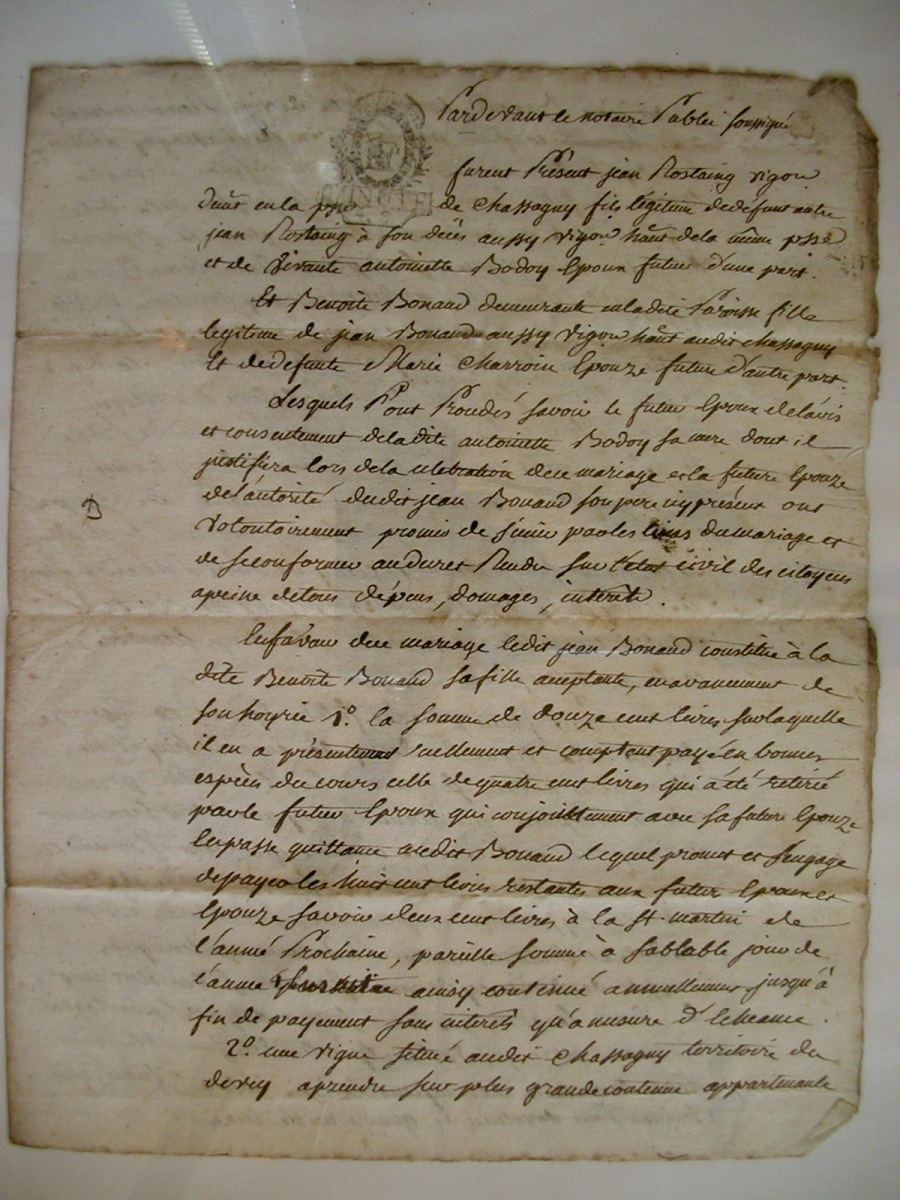 Pardevant le notaire Public soussigné
furent Présent jean Rostaing vigon
de Chassagny fils légitime de défunt autre
jean Rostaing à son décès aussy vigon hant de la même psse
et de vivante antoinette Bodoy Epoux futur d'une part.
Et Benoite Bonaud demeurante en ladite Paroisse fille
legitime de jean Bonaud aussy vigon hant audit chassagny
Et de defunte Marie Charroin Epouze future d'autre part.
Lesquels Procédés savoir le futur Epoux de l'avis
et consentement de la dite antoinette Bodoy sa mere dont il
justifiera lors de la celebration de ce mariage et la future Epouze
de l'autorité dudit jean Bonaud son pere icy présent ont
volontairement promis de s'unir par les liens du mariage et
de se conformer au decret Rendu sur l'état civil des citoyens
apeine de tous dépens, domages, interets.
En faveur de ce mariage ledit jean Bonaud constitue à la
dite Benoite Bonaud sa fille acceptante, en avancement de
son hoyrie 1º. la somme de douze cent livres sur laquelle
il en a présentement réellement et comptant payé en bonnes
espèces du cours celle de quatre cent livres qui a été retiré
par le futur Epoux qui conjointement avec sa future Epouze
en passe quittance audit Bonaud lequel promet et s'engage
de payer les huit cent livres restantes aux futur Epoux et
Epouze savoir deux cent livres à la St. martin de
l'année Prochaine, pareille somme à sablable jour de
l'année ainsy continué annuellement jusqu'à
fin de payement sans interets qu'a mesure d'Echeance.
2º. une vigne situé audit Chassagny territoire du
devey aprendre sur plus grande contenue appartenante
B